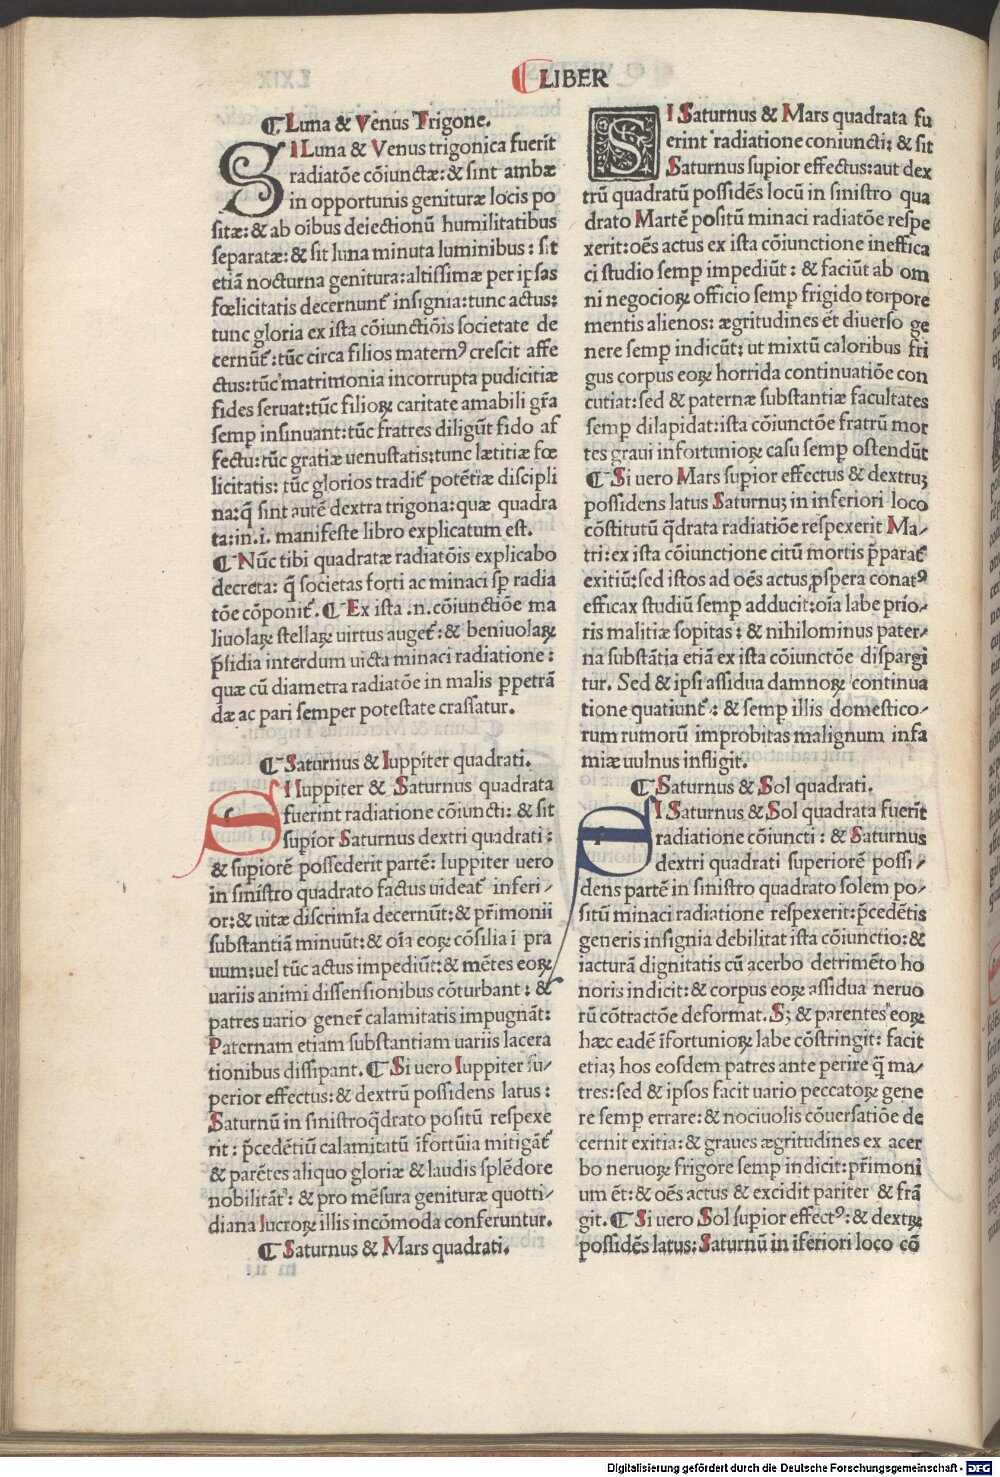 LIBER
¶ Luna & Venus Trigone.
SI Luna & Venus trigonica fuerit
radiatōe cōiunctæ: & sint ambæ
in opportunis genituræ locis po
sitæ: & ab oibus deiectionū humilitatibus
separatæ: & sit luna minuta luminibus: sit
etiā nocturna genitura: altissimæ per ipsas
fœlicitatis decernunt̄ insignia: tunc actus:
tunc gloria ex ista cōiunctiōis societate de
cernūt̄: tūc circa filios maternꝰ crescit affe
ctus: tūc matrimonia incorrupta pudicitiæ
fides seruat: tūc filioꝝ caritate amabili gr̄a
semp̱ insinuant: tūc fratres diligūt fido af
fectu: tūc gratiæ uenustatis: tunc lætitiæ fœ
licitatis: tūc glorios tradit̄ potētiæ discipli
na: q̄ sint autē dextra trigona: quæ quadra
ta: in .i. manifeste libro explicatum est.
¶ Nūc tibi quadratæ radiatōis explicabo
decreta: q̄ societas forti ac minaci sp̱ radia
tōe cōponit̄. ¶ Ex ista .n. cōiunctiōe ma
liuolaꝝ stellaꝝ uirtus auget̄: & beniuolaꝝ
p̄sidia interdum uicta minaci radiatione:
quæ cū diametra radiatōe in malis p̱petrā
dæ ac pari semper potestate crassatur.
¶ Saturnus & Iuppiter quadrati.
SI Iuppiter & Saturnus quadrata
fuerint radiatione cōiuncti: & sit
sup̱ior Saturnus dextri quadrati:
& sup̱iorē possederit partē: Iuppiter uero
in sinistro quadrato factus uideat̄ inferi⸗
or: & uitæ discrimīa decernūt: & pr̄imonii
substantiā minuūt: & oīa eoꝝ cōsilia ī pra
uum: uel tūc actus impediūt: & mētes eoꝝ
uariis animi dissensionibus cōturbant: &
patres uario gener̄ calamitatis impugnāt:
Paternam etiam substantiam uariis lacera
tionibus dissipant. ¶ Si uero Iuppiter su⸗
perior effectus: & dextrū possidens latus:
Saturnū in sinistro q̄drato positū respexe
rit: p̄cedētiū calamitatū īfortūia mitigāt̄
& parētes aliquo gloriæ & laudis splēdore
nobilitāt̄: & pro mēsura genituræ quotti⸗
diana lucroꝝ illis incōmoda conferuntur.
¶ Saturnus & Mars quadrati.
SI Saturnus & Mars quadrata fu
erint radiatione coniuncti: & sit
Saturnus sup̱ior effectus: aut dex
trū quadratū possidēs locū in sinistro qua
drato Martē positū minaci radiatōe respe
xerit: oēs actus ex ista cōiunctione ineffica
ci studio semp̱ impediūt: & faciūt ab om
ni negocioꝝ officio semp̱ frigido torpore
mentis alienos: ægritudines et̄ diuerso ge
nere semp̱ indicūt: ut mixtū caloribus fri
gus corpus eoꝝ horrida continuatiōe con
cutiat: sed & paternæ substantiæ facultates
semp̱ dilapidat: ista cōiunctōe fratrū mor
tes graui infortunioꝝ casu semp̱ ostendūt
¶ Si uero Mars sup̱ior effectus & dextruꝫ
possidens latus Saturnuꝫ in inferiori loco
cōstitutū q̄drata radiatiōe respexerit Ma⸗
tri: ex ista cōiunctione citū mortis p̄parat̄
exitiū: sed istos ad oēs actus ꝓspera conatꝰ
efficax studiū semp̱ adducit: oīa labe prio⸗
ris malitiæ sopitas: & nihilominus pater⸗
na substātia etiā ex ista cōiunctōe dispargi
tur. Sed & ipsi assidua damnoꝝ continua
tione quatiunt̄: & semp̱ illis domestico⸗
rum rumorū improbitas malignum infa
miæ uulnus infligit.
¶ Saturnus & Sol quadrati.
SI Saturnus & Sol quadrata fuerīt
radiatione cōiuncti: & Saturnus
dextri quadrati superiorē possi⸗
dens partē in sinistro quadrato solem po⸗
sitū minaci radiatione respexerit: p̄cedētis
generis insignia debilitat ista cōiunctio: &
iacturā dignitatis cū acerbo detrimēto ho
noris indicit: & corpus eoꝝ assidua neruo
rū cōtractōe deformat. Sꝫ & parentes eoꝝ
hæc eadē īfortunioꝝ labe cōstringit: facit
etiaꝫ hos eosdem patres ante perire q̄ ma⸗
tres: sed & ipsos facit uario peccatoꝝ gene
re semp̱ errare: & nociuolis cōuersatiōe de
cernit exitia: & graues ægritudines ex acer
bo neruoꝝ frigore semp̱ indicit: pr̄imoni
um ēt: & oēs actus & excidit pariter & frā
git. ¶ Si uero Sol sup̱ior effectꝰ: & dextꝝ
possidēs latus: Saturnū in īferiori loco cō
Digitalisierung gefördert durch die Deutsche Forschungsgemeinschaft - DFG